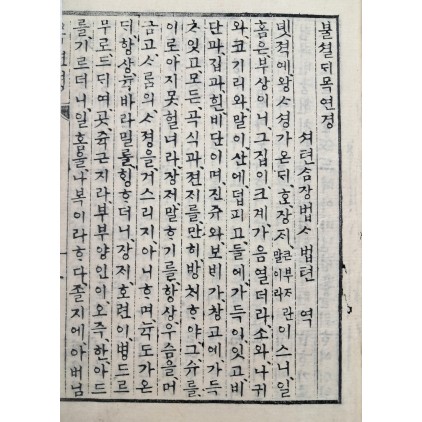 불셜ᄃᆡ목연경
셔텬삼장법ᄉᆞ법텬 역
녯적에왕ᄉᆞ셩가온ᄃᆡ、ᄒᆞᆫ장져、큰부ᄌᆞ란말이라이스니、일
홈은부상이니、그집이크계가음열더라、소와나귀
와코기리와말이산에덥피고들에가득이잇고비
단과집과흰비단이며、진쥬와보ᄇᆡ가창고에가득
ᄎᆞ잇고、모든곡식과젼지를만히방쳐ᄒᆞ야、그슈를
이로아지못헐너라、장져、말ᄒᆞ기를항상우슴을머
금고、ᄉᆞ름의ᄉᆞ졍을거스리지아니ᄒᆞ며、뉵도가온
ᄃᆡ、항상뉵바라밀를ᄒᆡᆼᄒᆞ더니、장져、호련이、병드르
무로드듸여곳쥭근지라、부부양인이、오즉한아드
를기르더니、일홈을나복이라ᄒᆞ다、졸지에아버님